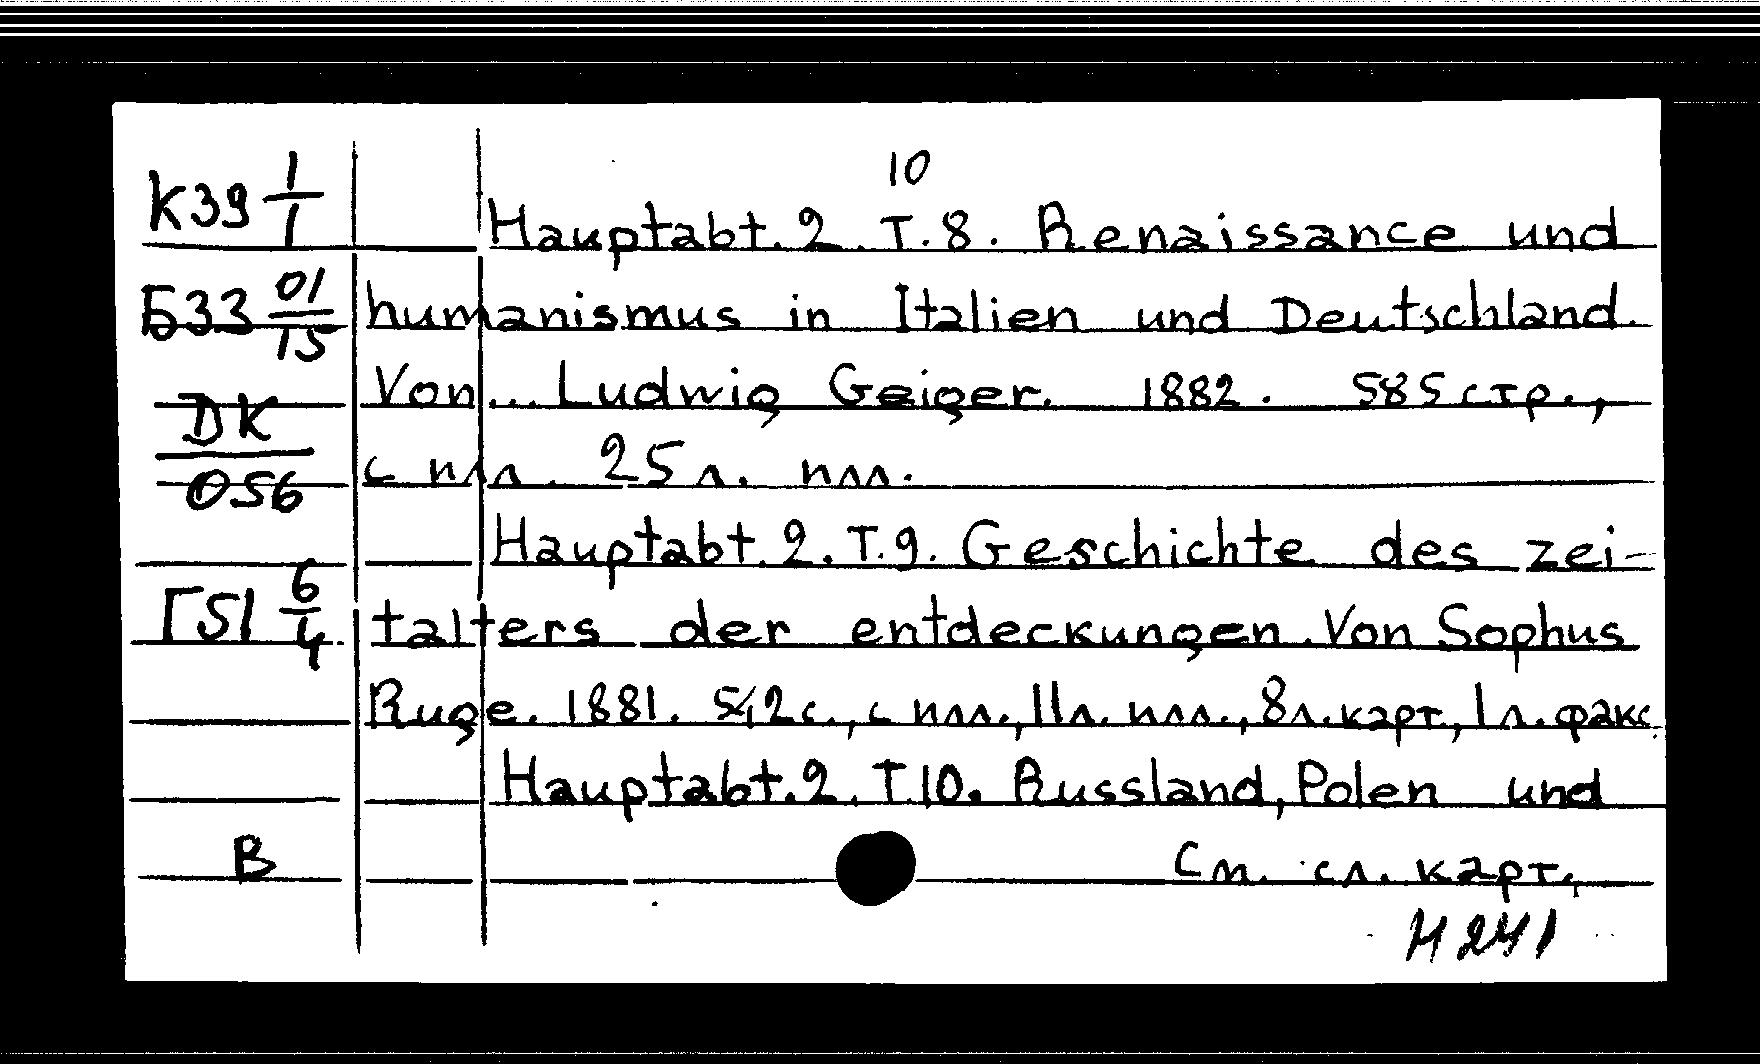 10
К39 1/1
Hauptabt. 2. T. 8. Renaissance und
Б33 01/15
humanismus in Italien und Deutschland.
Von... Ludwig Geiger. 1882. 585 стр.,
DK/056
с илл. 25 л. илл.
Hauptabt. 2. T. 9. Geschichte des zei-
Г51 6/4
talters der entdeckungen. Von Sophus
Ruge. 1881. 542 с., с илл., 11 л. илл., 8 л. карт., 1 л. факс.
Hauptabt. 2. T. 10. Russland, Polen und
В
См. сл. карт.
И241